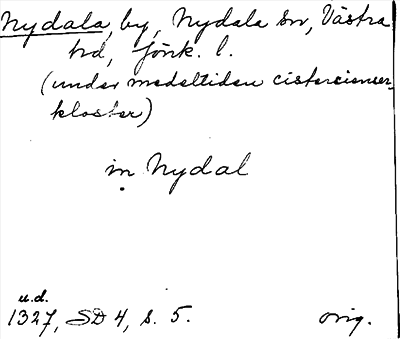 Nydala, by, Nydala sn, Västra
hd, Jönk. l.
(under medeltiden cistercienser-
kloster)
in Nydal
u.d.
1327, SD 4, s. 5.
orig.